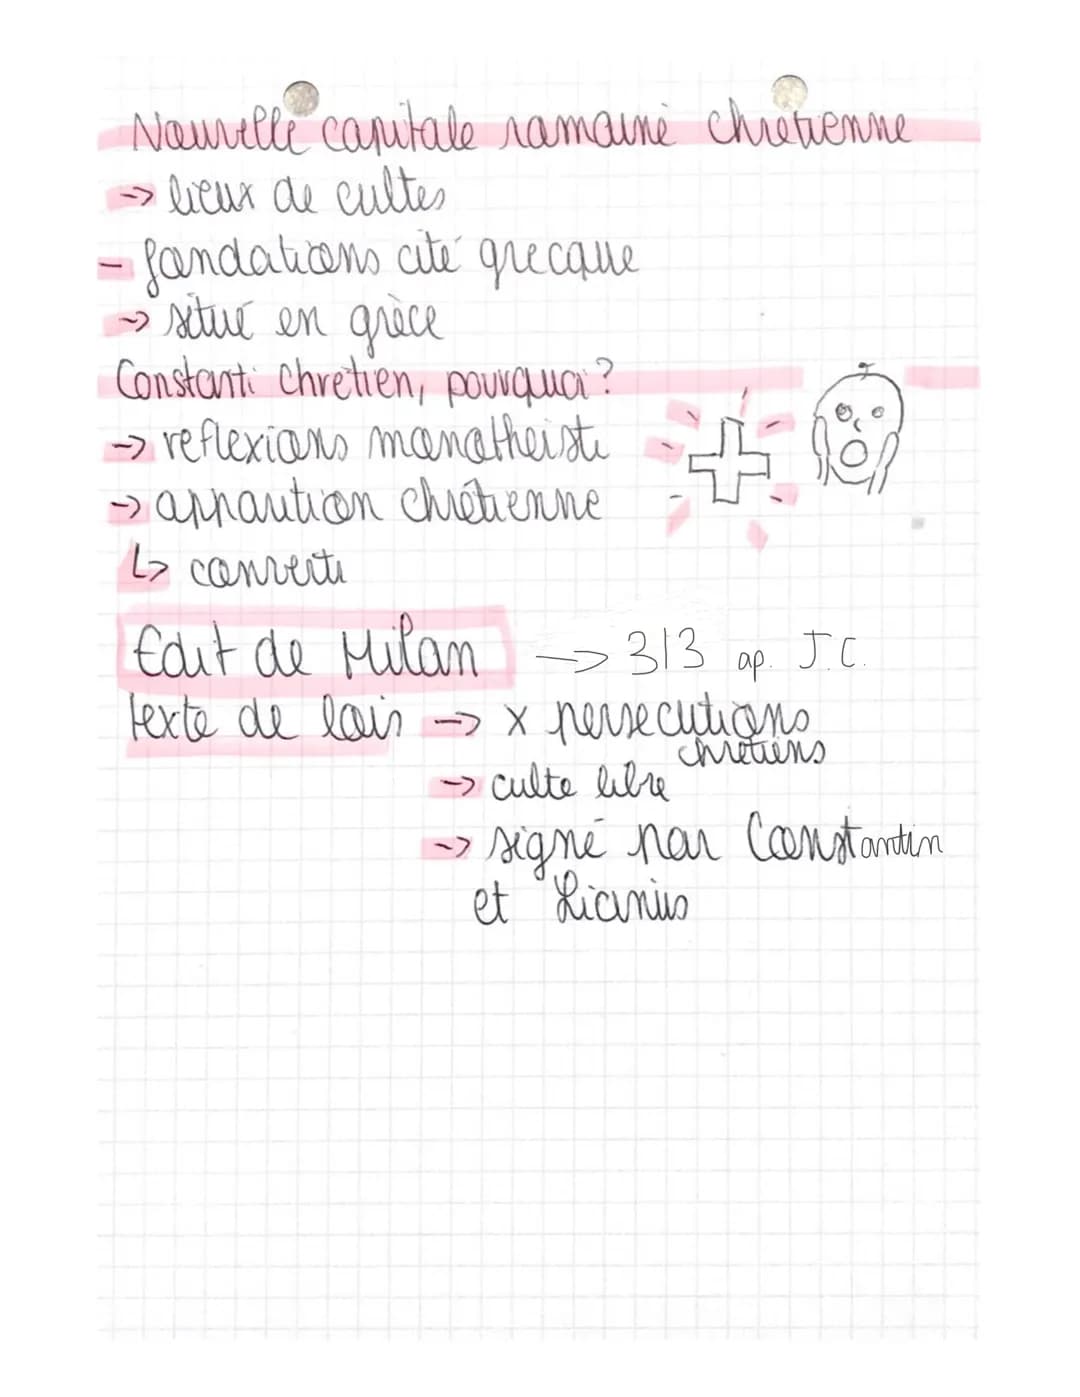 Nouvelle capitale romaine chrétienne
-> lieux de cultes
- fondations cité grecque
-> situé en grèce
Constanti chretien, pourquoi ?
-> reflexions monotheiste
-> apparition chrétienne
↳ converti
Edit de Milan -> 313 ap. J.C.
texte de lois -> x persecutions
chrétiens
-> culte libre
-> signé par Constantin
et Licinius